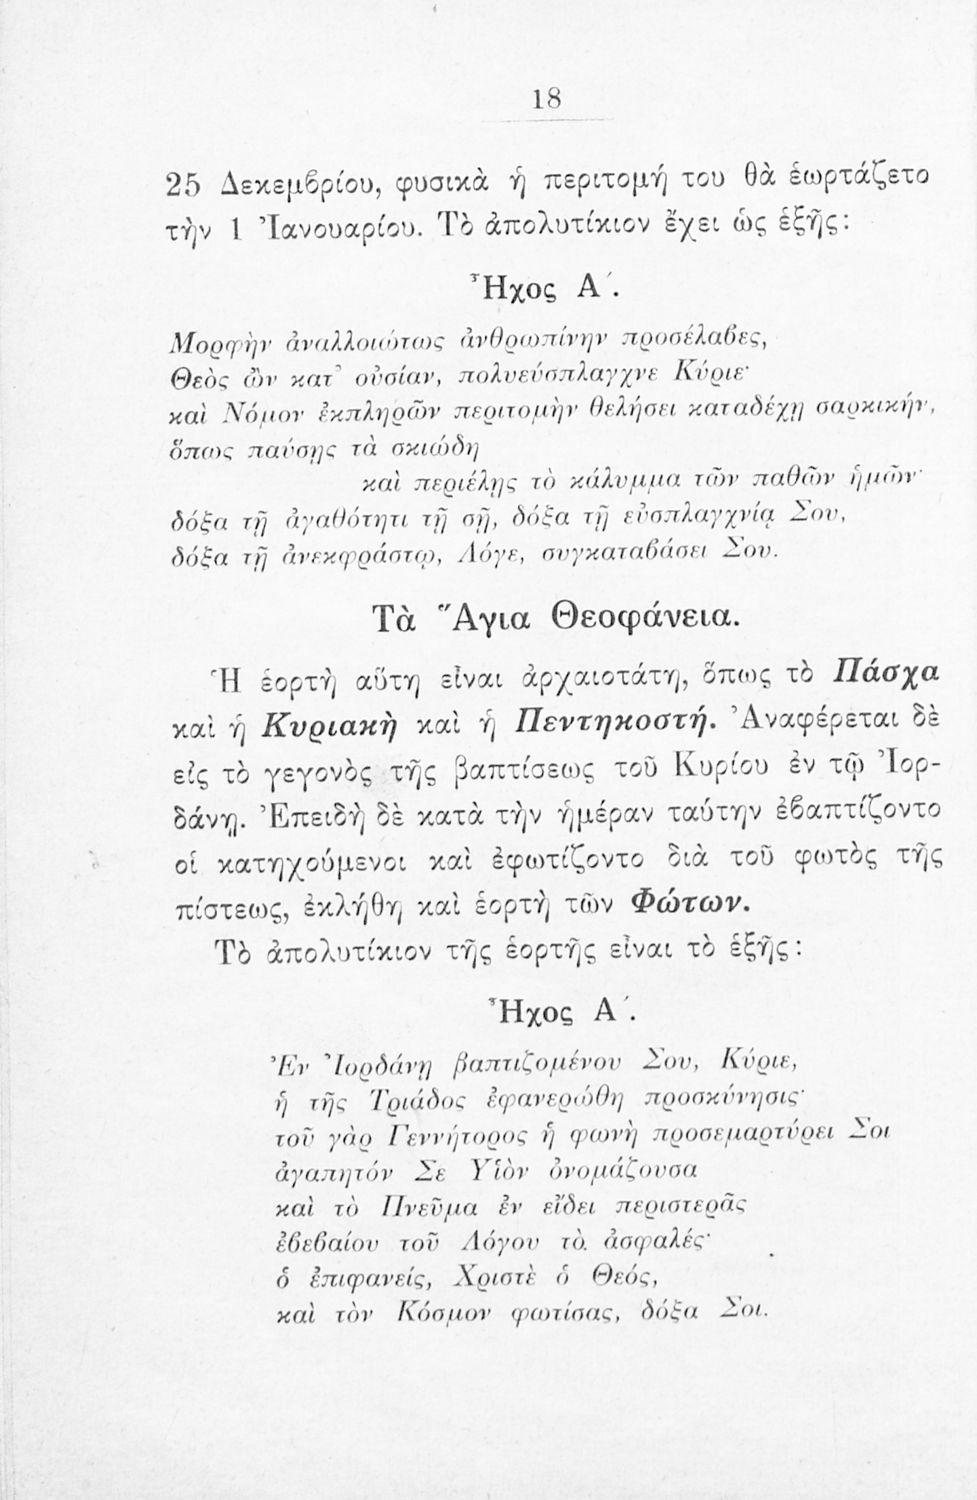 18
25 Δεκεμβρίου, φυσικὰ ἡ περιτομή του θὰ ἑωρτάζετο
τὴν 1 Ἰανουαρίου. Τὸ ἀπολυτίκιον ἔχει ὡς ἑξῆς:
Ἦχος Α΄.
Μορφὴν ἀναλλοιώτως ἀνθρωπίνην προσέλαβες,
Θεὸς ὢν κατ᾿ οὐσίαν, πολυεύσπλαγχνε Κύριε·
καὶ Νόμον ἐκπληρῶν περιτομὴν θελήσει καταδέχῃ σαρκικήν,
ὅπως παύσῃς τὰ σκιώδη
καὶ περιέλῃς τὸ κάλυμμα τῶν παθῶν ἡμῶν·
δόξα τῇ ἀγαθότητι τῇ σῇ, δόξα τῇ εὐσπλαγχνίᾳ Σου,
δόξα τῇ ἀνεκφράστῳ, Λόγε, συγκαταβάσει Σου.
Τὰ Ἅγια Θεοφάνεια.
Ἡ ἑορτὴ αὕτη εἶναι ἀρχαιοτάτη, ὅπως τὸ Πάσχα
καὶ ἡ Κυριακὴ καὶ ἡ Πεντηκοστή. Ἀναφέρεται δὲ
εἰς τὸ γεγονὸς τῆς βαπτίσεως τοῦ Κυρίου ἐν τῷ Ἰορ-
δάνῃ. Ἐπειδὴ δὲ κατὰ τὴν ἡμέραν ταύτην ἐβαπτίζοντο
οἱ κατηχούμενοι καὶ ἐφωτίζοντο διὰ τοῦ φωτὸς τῆς
πίστεως, ἐκλήθη καὶ ἑορτὴ τῶν Φώτων.
Τὸ ἀπολυτίκιον τῆς ἑορτῆς εἶναι τὸ ἑξῆς:
Ἦχος Α΄.
Ἐν Ἰορδάνῃ βαπτιζομένου Σου, Κύριε,
ἡ τῆς Τριάδος ἐφανερώθη προσκύνησις·
τοῦ γὰρ Γεννήτορος ἡ φωνὴ προσεμαρτύρει Σοι
ἀγαπητόν Σε Υἱὸν ὀνομάζουσα
καὶ τὸ Πνεῦμα ἐν εἴδει περιστερᾶς
ἐβεβαίου τοῦ Λόγου τὸ ἀσφαλές·
ὁ ἐπιφανείς, Χριστὲ ὁ Θεός,
καὶ τὸν Κόσμον φωτίσας, δόξα Σοι.